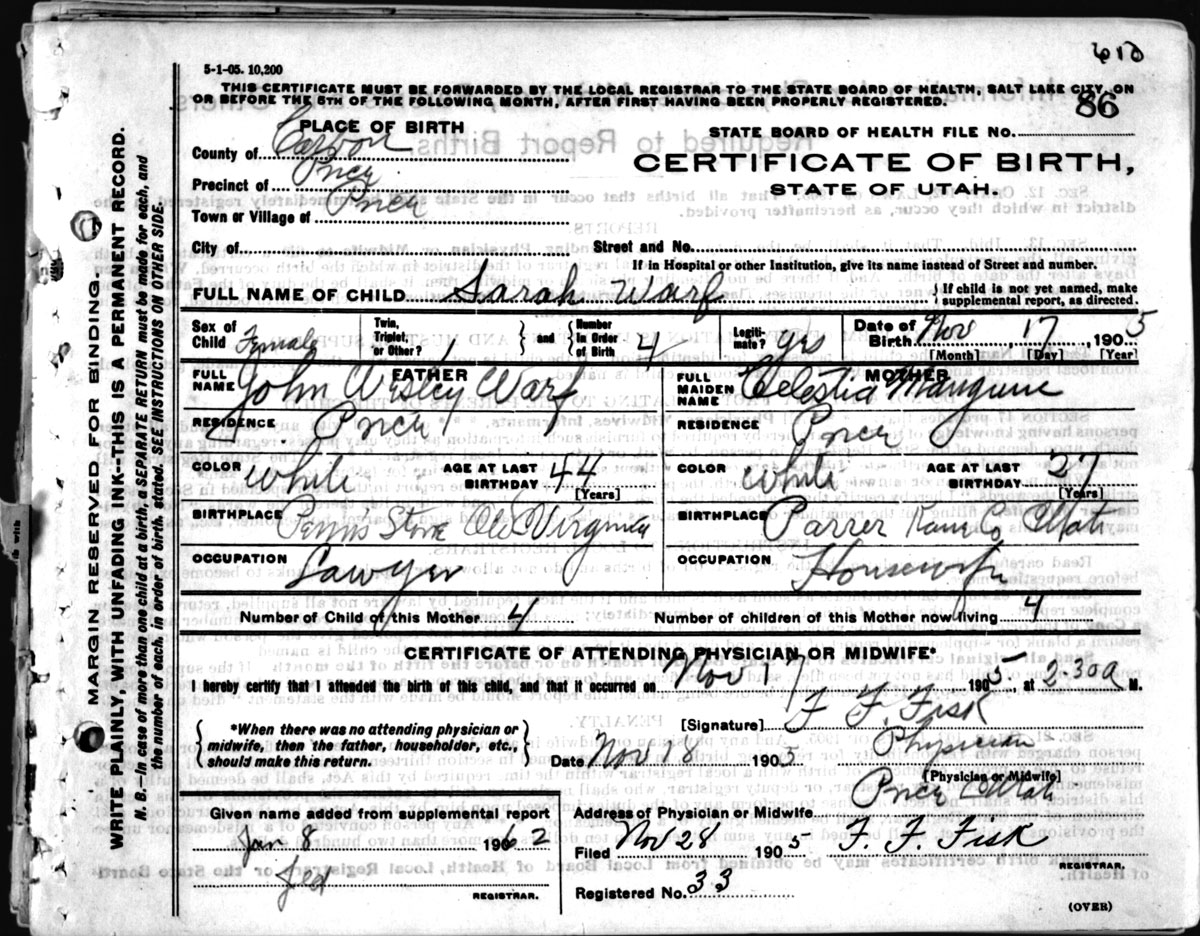 610
5-1-05. 10,200
THIS CERTIFICATE MUST BE FORWARDED BY THE LOCAL REGISTRAR TO THE STATE BOARD OF HEALTH, SALT LAKE CITY, ON
OR BEFORE THE 5TH OF THE FOLLOWING MONTH, AFTER FIRST HAVING BEEN PROPERLY REGISTERED.
86
PLACE OF BIRTH
STATE BOARD OF HEALTH FILE NO.
County of Carbon
CERTIFICATE OF BIRTH,
Precinct of Price
STATE OF UTAH.
Town or Village of Price
City of
Street and No.
If in Hospital or other Institution, give its name instead of Street and number
FULL NAME OF CHILD Sarah Warf
If child is not yet named, make supplemental report, as directed.
Sex of Child Female
Twin, Triplet, or Other?
and
Number in Order of Birth 4
Legitimate? yes
Date of Birth Nov 17 1905
[Month] [Day] [Year]
FATHER
FULL NAME John Wesley Warf
MOTHER
FULL MAIDEN NAME Celestia Mangum
RESIDENCE Price
RESIDENCE Price
COLOR White
AGE AT LAST BIRTHDAY 44
[Years]
COLOR White
AGE AT LAST BIRTHDAY 27
[Years]
BIRTHPLACE Virginia
BIRTHPLACE Kane Co Utah
OCCUPATION Lawyer
OCCUPATION Housewife
Number of Child of this Mother 4
Number of children of this Mother now living 4
CERTIFICATE OF ATTENDING PHYSICIAN OR MIDWIFE*
I hereby certify that I attended the birth of this child, and that it occurred on Nov 17 1905, at 2-30a M.
*When there was no attending physician or midwife, then the father, householder, etc., should make this return.
[Signature] F. F. Fisk
Date Nov 18 1905
Physician
[Physician or Midwife]
Price Utah
Address of Physician or Midwife
Given name added from supplemental report
Jan 8 1962
REGISTRAR.
Filed Nov 28 1905 F. F. Fisk
REGISTRAR.
Registered No. 33
(OVER)
MARGIN RESERVED FOR BINDING.
WRITE PLAINLY, WITH UNFADING INK--THIS IS A PERMANENT RECORD.
N. B.--In case of more than one child at a birth, a SEPARATE RETURN must be made for each, and
the number of each, in order of birth, stated. SEE INSTRUCTIONS ON OTHER SIDE.